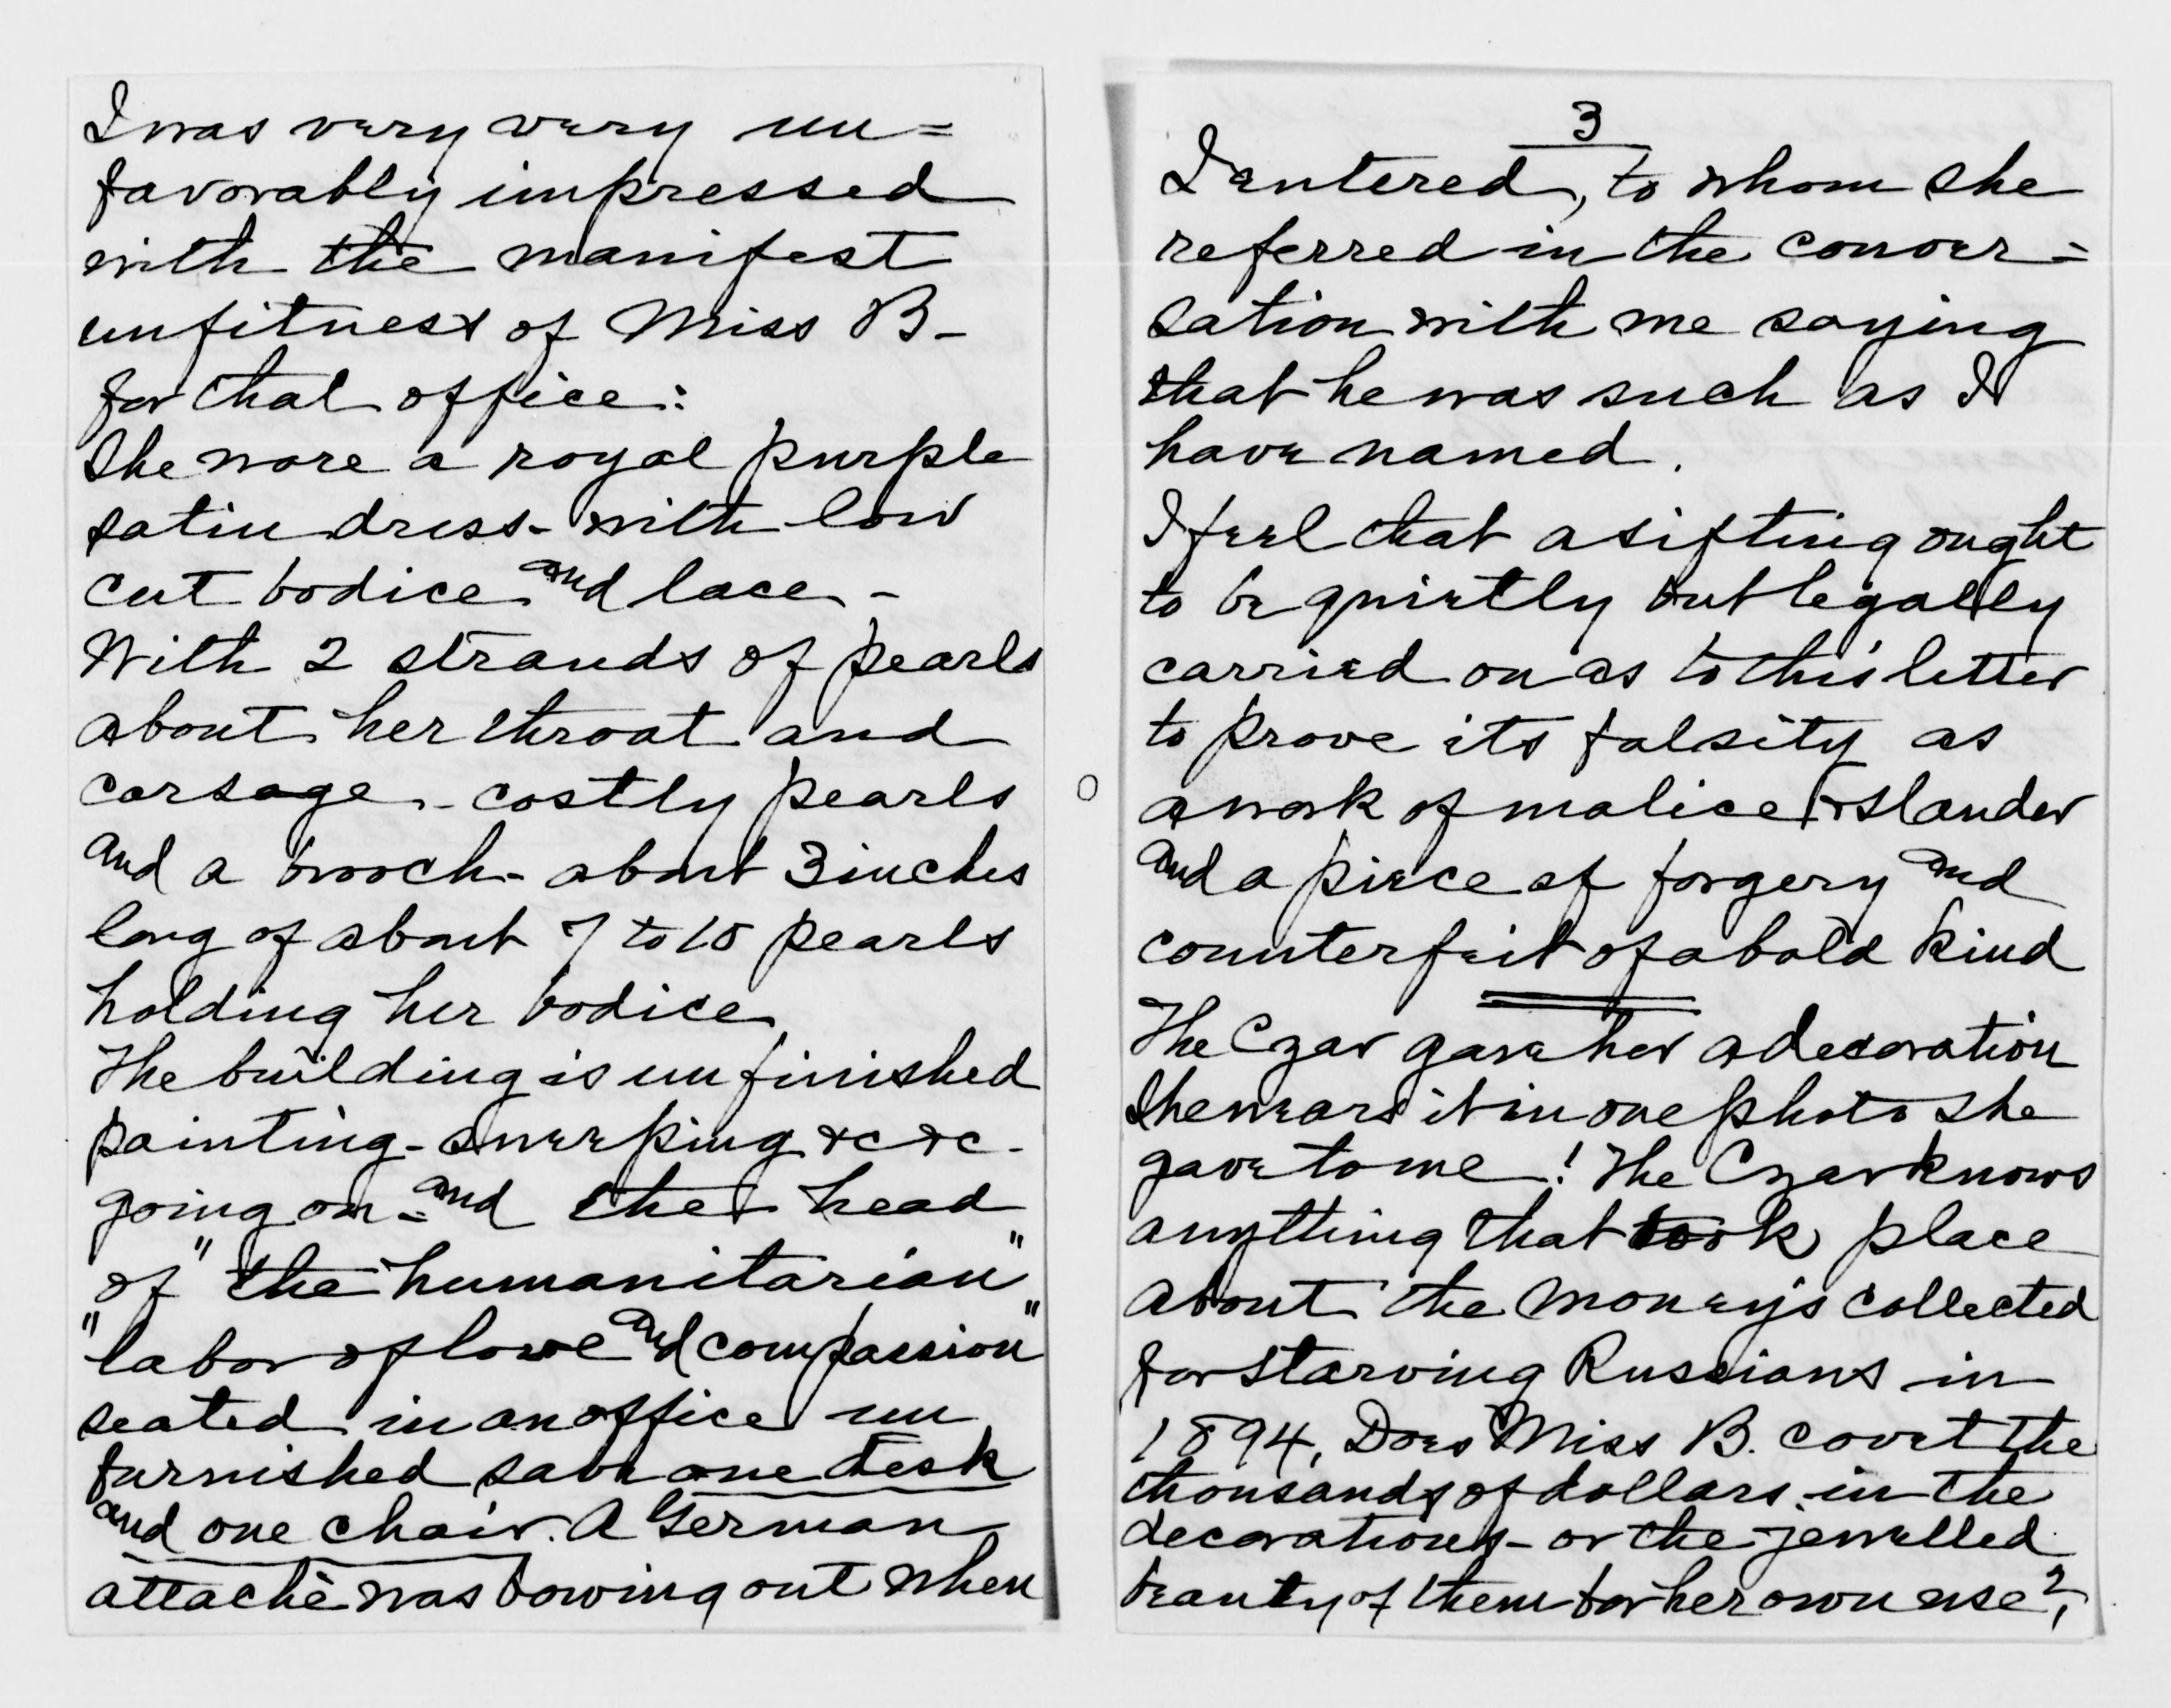 I was very very un=
favorably impressed
with the manifest
unfitness of Miss B-
for that office:
She wore a royal purple
satin dress- with low
cut bodice and lace -
With 2 strands of pearls
about her throat and
corsage - costly pearls
and a brooch - about 3 inches
long of about 7 to 10 pearls
holding her bodice
The building is unfinished
painting - sweeping &c &c -
going on - and the head
of "the humanitarian"
"labor of love and compassion"
seated in an office un
furnished save one desk
and one chair. A German
attachè was bowing out when
3
I entered, to whom she
referred in the conver=
sation with me saying
that he was such as I
have named.
I feel that a sifting ought
to be quietly but legally
carried on as to this letter
to prove its falsity as
a work of malice & slander
and a piece of forgery and
counterfeit of a bold kind
The Czar gave her a decoration
She wears it in one photo she
gave to me! The Czar knows
anything that took place
about the moneys collected
for starving Russians in
1894, Does Miss B. covet the
thousands of dollars in the
decorations - or the jewelled
beauty of them for her own use?,